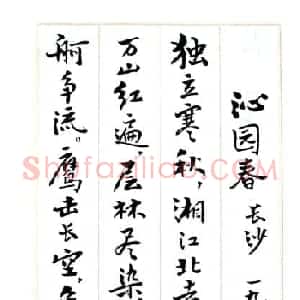 沁园春 长沙 一九
独立寒秋，湘江北去
万山红遍，层林尽染
舸争流。鹰击长空，鱼
Shufaziliao.COM